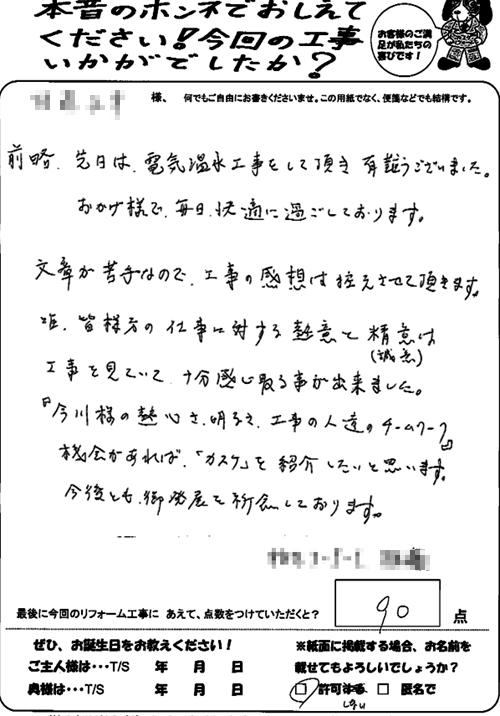 本音のホンネでおしえて
ください!今回の工事
いかがでしたか?
お客様のご満
足が私たちの
喜びです!
様、 何でもご自由にお書きくださいませ。この用紙でなく、便箋などでも結構です。
前略、先日は、電気温水工事をして頂き 有難うございました。
おかげ様で、毎日、快適に過ごしております。
文章が苦手なので、工事の感想は控えさせて頂きます。
唯、皆様方の仕事に対する熱意と精意は
(誠意)
工事を見ていて、十分感じ取る事が出来ました。
『今川様の熱心さ、明るさ、工事の人達のチームワーク』
機会があれば、「カスケ」を紹介したいと思います。
今後とも、御発展を祈念しております。
最後に今回のリフォーム工事に あえて、点数をつけていただくと?
90 点
ぜひ、お誕生日をお教えください!
ご主人様は・・・T/S 年 月 日
奥様は・・・T/S 年 月 日
※紙面に掲載する場合、お名前を
載せてもよろしいでしょうか?
□ 許可 □ 匿名で